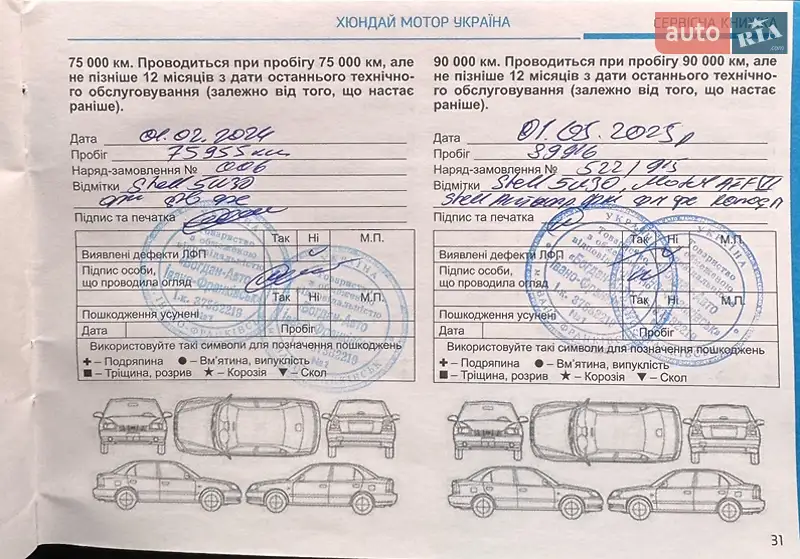 ХЮНДАЙ МОТОР УКРАЇНА
СЕРВІСНА КНИЖКА
auto RIA .com
75 000 км. Проводиться при пробігу 75 000 км, але
не пізніше 12 місяців з дати останнього технічно-
го обслуговування (залежно від того, що настає
раніше).
Дата 01.02.2024
Пробіг 75955 км
Наряд-замовлення № 006
Відмітки Shell 5W30
Підпис та печатка
Так Ні М.П.
Виявлені дефекти ЛФП
Підпис особи,
що проводила огляд
Так Ні М.П.
Пошкодження усунені
Дата Пробіг
Використовуйте такі символи для позначення пошкоджень
+ – Подряпина ● – Вм'ятина, випуклість
■ – Тріщина, розрив ★ – Корозія ▼ – Скол
90 000 км. Проводиться при пробігу 90 000 км, але
не пізніше 12 місяців з дати останнього технічно-
го обслуговування (залежно від того, що настає
раніше).
Дата 01.05.2025р
Пробіг 89916
Наряд-замовлення № 522/913
Відмітки Shell 5W30, Motul ATF VI
Shell
Підпис та печатка
Так Ні М.П.
Виявлені дефекти ЛФП
Підпис особи,
що проводила огляд
Так Ні М.П.
Пошкодження усунені
Дата Пробіг
Використовуйте такі символи для позначення пошкоджень
+ – Подряпина ● – Вм'ятина, випуклість
■ – Тріщина, розрив ★ – Корозія ▼ – Скол
31